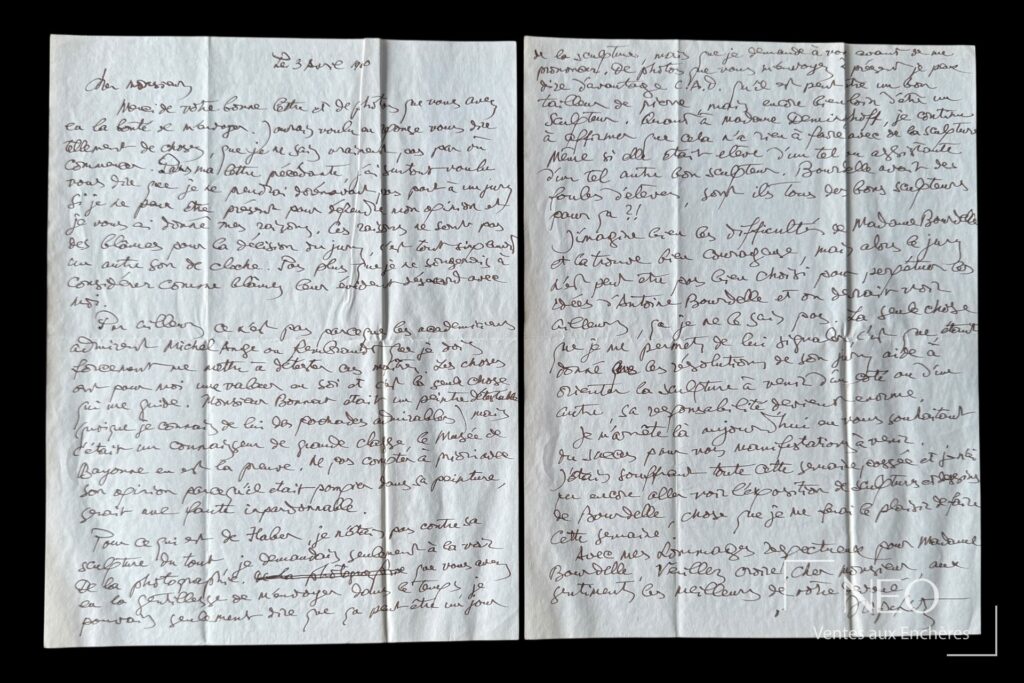 Le 3 Avril
Cher Monsieur
Merci de votre bonne lettre et de photos que vous avez
eu la bonté de m'envoyer. J'aurais voulu en réponse vous dire
tellement de choses, que je ne sais vraiment pas par où
commencer. Dans ma lettre précédente j'ai surtout voulu
vous dire que je ne prendrai dorénavant pas part à un jury
si je ne peux être présent pour défendre mon opinion et
je vous ai donné mes raisons. Ces raisons ne sont pas
des blâmes pour la décision du jury, c'est tout simplement
un autre son de cloche. Pas plus que je ne songerais à
considérer comme blâmes leur évident désaccord avec
moi.
Par ailleurs ce n'est pas parceque les academiciens
admirent Michel Ange ou Rembrandt que je dois
forcement me mettre à détester ces maîtres. Les choses
ont pour moi une valeur en soi et c'est la seule chose
qui me guide. Monsieur Bonnat était un peintre détestable
(quoique je connais de lui des pochades admirables) mais
c'était un connaisseur de grande classe, le Musée de
Bayonne en est la preuve. Ne pas compter à priori avec
son opinion parcequ'il était pompier dans sa peinture,
serait une faute impardonnable.
Pour ce qui est de Haber, je n'étais pas contre sa
sculpture du tout, je demandais seulement à la voir
De la photographie, que vous avez
eu la gentillesse de m'envoyer dans le temps, je
pouvais seulement dire que ça peut être un jour
de la sculpture, mais que je demande à voir avant de me
prononcer. De photos que vous m'envoyez à présent je peux
dire d'avantage C.A.D. qu'il est peut être un bon
tailleur de pierre, mais encore bien loin d'être un
sculpteur. Quant à madame je continue
à affirmer que cela n'a rien à faire avec de la sculpture
même si elle était élève d'un tel ou assistante
d'un tel autre bon sculpteur. Bourdelle avait des
foules d'élèves, sont ils tous des bons sculpteurs
pour ça ?!
J'imagine bien les difficultés de Madame Bourdelle
et la trouve bien courageuse, mais alors le jury
n'est peut être pas bien choisi pour perpétuer les
idées d'Antoine Bourdelle et on devrait voir
ailleurs, ça je ne le sais pas. La seule chose
que je me permets de lui signaler c'est que étant
donné que les résolutions de son jury aide à
orienter la sculpture à venir d'un côté ou d'un
autre sa responsabilité devient enorme.
Je m'arrête là aujourd'hui en vous souhaitant
du succès pour vos manifestations à venir.
J'étais souffrant toute cette semaine passée et je n'ai
pu encore aller voir l'exposition de sculptures et dessins
de Bourdelle, chose que je me ferai le plaisir de faire
cette semaine.
Avec mes hommages respectueux pour Madame
Bourdelle, Veuillez croire, Cher monsieur, aux
sentiments les meilleurs de votre
NEO
Ventes aux Enchères